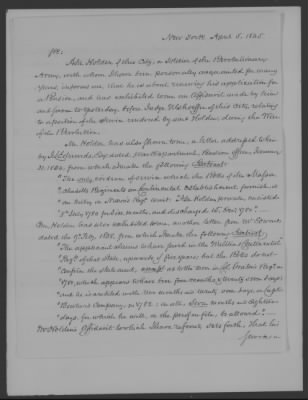 New York April 5, 1845
Sir,
Asa Holden of this City, a Soldier of the Revolutionary
Army, with whom I have been personally acquainted for many
years, informs me, that he is about renewing his application for
a Pension, and has exhibited to me an Affidavit made by him
and sworn to yesterday, before Judge of this City, relating
to a portion of the service rendered by said Holden, during the War
of the Revolution.
Mr. Holden has also shown to me, a letter addressed to him
by Edwards Esq. dated War Department, Pension Office, January
from which I make the following Extract:
"The only evidence of service which the Rolls of the Massa-
"chusetts Regiments on Continental establishment furnish, is
"an entry in Regt. Asa Holden private, enlisted
"5th July 1780 for six months, and discharged 1780."
Mr. Holden has also exhibited to me, another letter from Mr Edwards
dated the 17 July, from which I make the following Extract,
"The applicant claims to have served in the Militia & Continental
"Regts of this State, upwards of five years, but the Rolls do not
"confirm the statement, except as to the term in Col. Regt. in
"1780, which appears to have been four months & twenty seven days
"and he is credited with two months and twenty one days, in Capt.
"Company, in 1782: in all, Seven months and eighteen
"days, for which he will, on the proof on file, be allowed".
Mr Holden's Affidavit to which I have referred, sets forth, that his
service